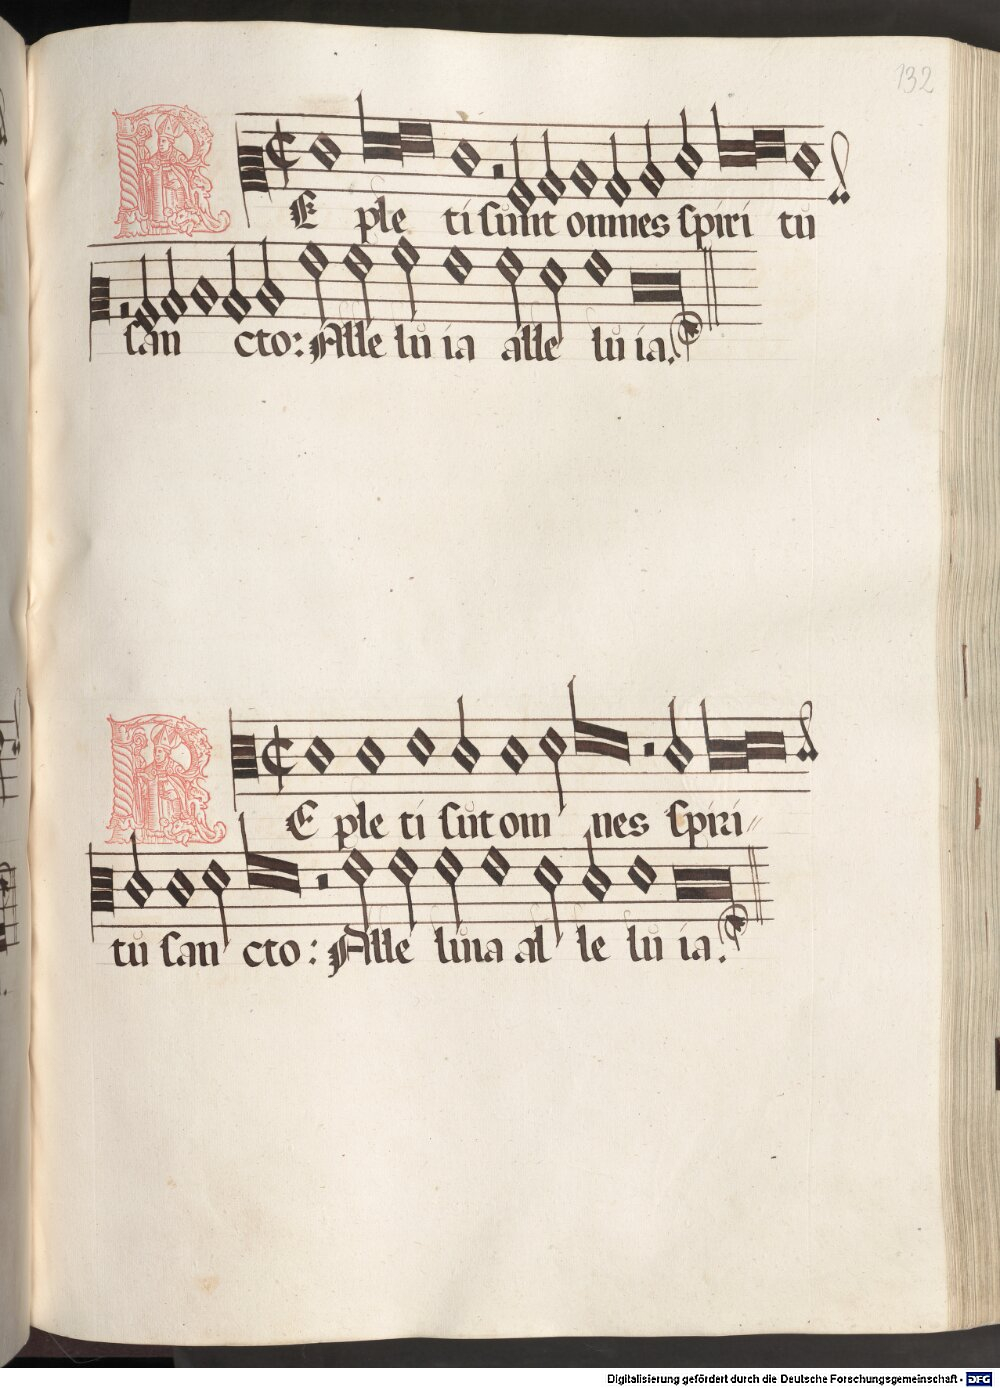 132
RE ple ti sunt omnes spiri tu
san cto: Alle lu ia alle lu ia.
RE ple ti sūt om nes spiri
tu san cto: Alle luia al le lu ia.
Digitalisierung gefördert durch die Deutsche Forschungsgemeinschaft - DFG